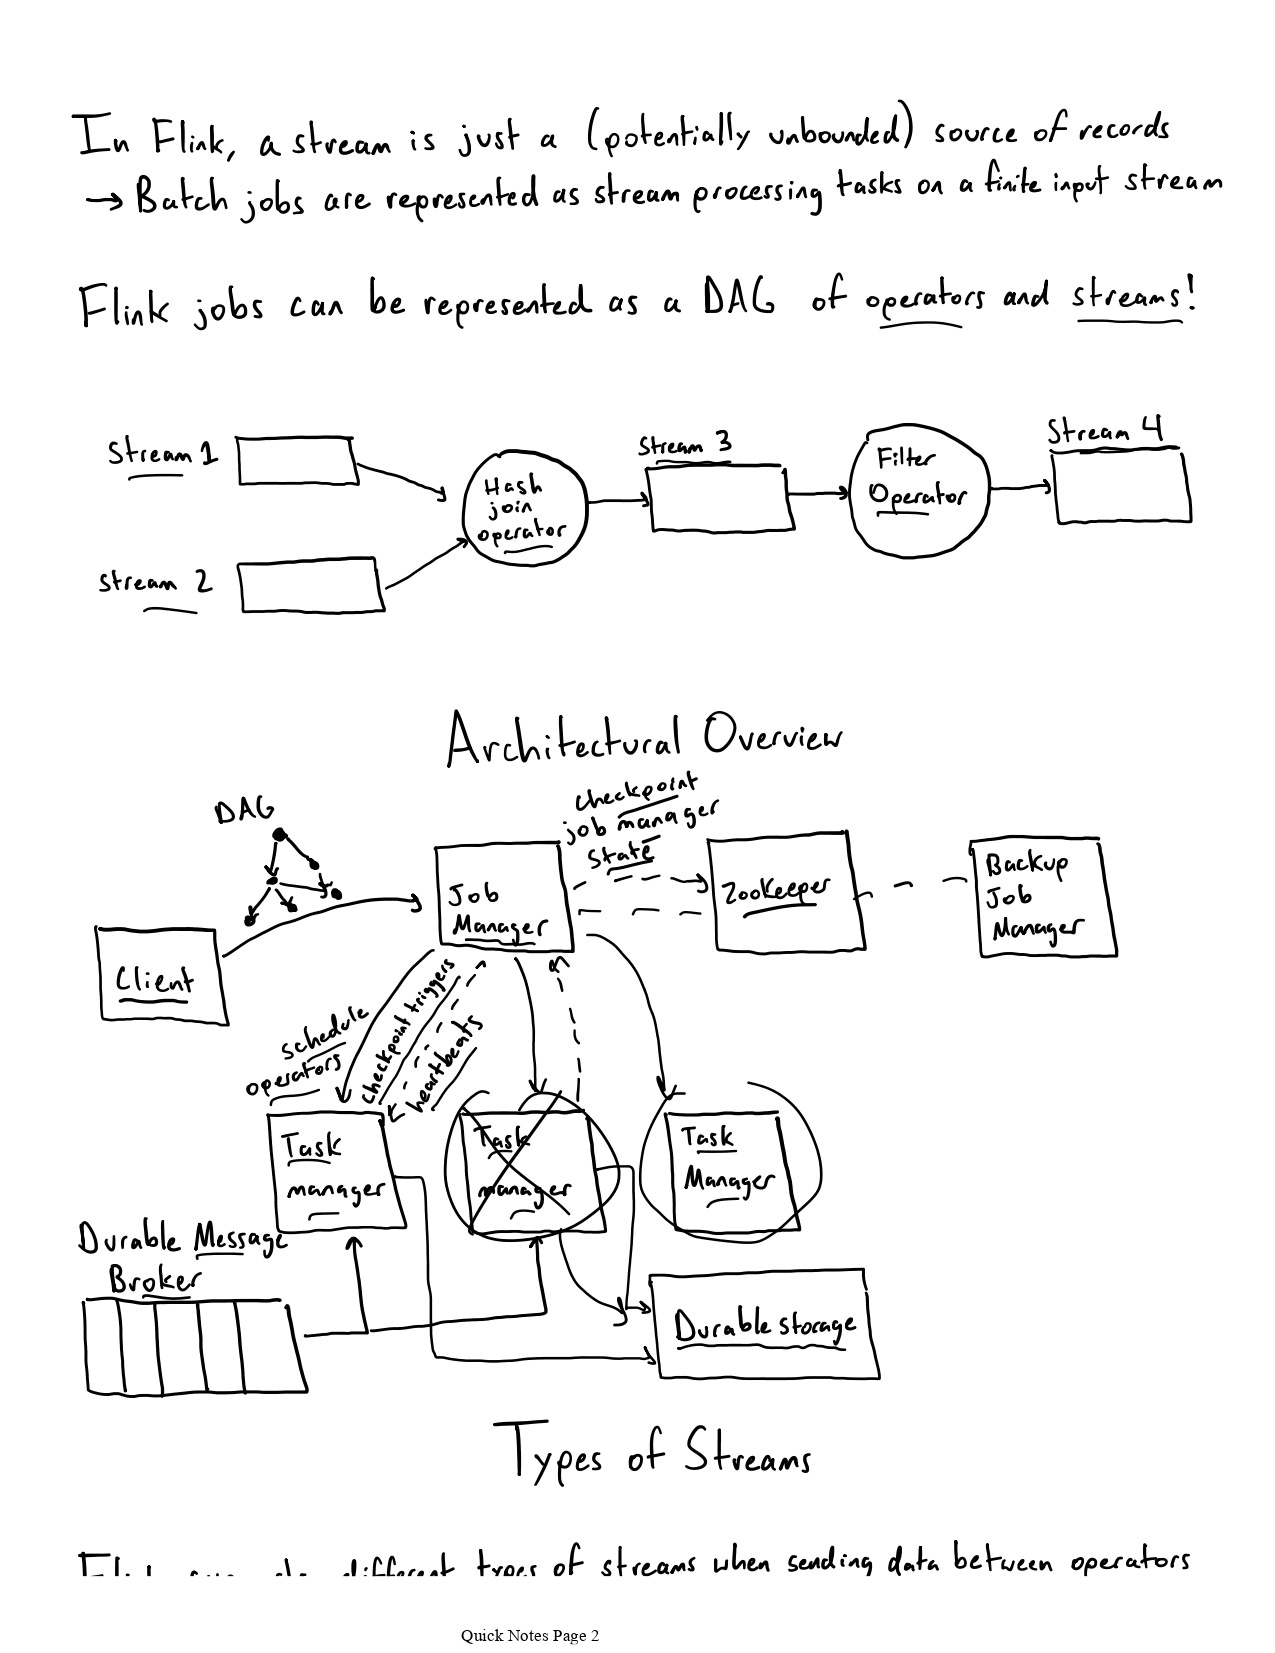 In Flink, a stream is just a (potentially unbounded) source of records
→ Batch jobs are represented as stream processing tasks on a finite input stream
Flink jobs can be represented as a DAG of operators and streams!
Stream 1
Hash
join
operator
Stream 3
Filter
Operator
Stream 4
Stream 2
Architectural Overview
DAG
checkpoint
job manager
state
Job
Manager
Zookeeper
Backup
Job
Manager
Client
schedule
operators
checkpoint triggers
heartbeats
Task
manager
Task
manager
Task
Manager
Durable Message
Broker
Durable storage
Types of Streams
different types of streams when sending data between operators
Quick Notes Page 2